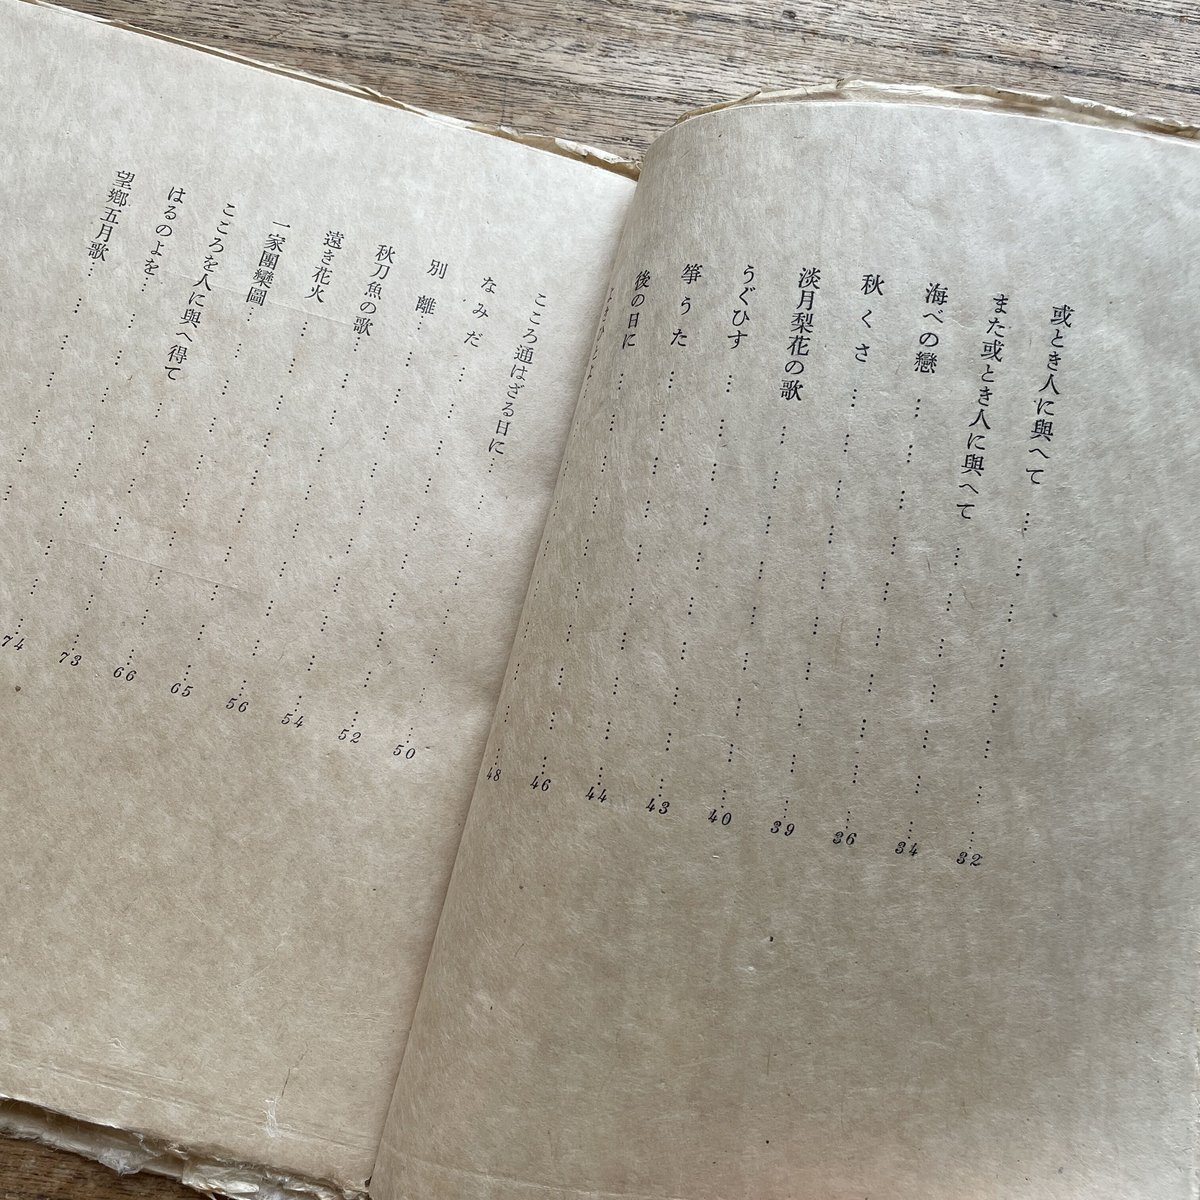 或とき人に與へて……………………32
また或とき人に與へて……………………34
海べの戀……………………36
秋くさ……………………39
淡月梨花の歌……………………40
うぐひす……………………43
箏うた……………………44
後の日に……………………46
……………………48
こころ通はざる日に……………………50
なみだ……………………52
別離……………………54
秋刀魚の歌……………………56
遠き花火……………………65
一家團欒圖……………………66
こころを人に與へ得て……………………73
はるのよを……………………74
望鄕五月歌……………………